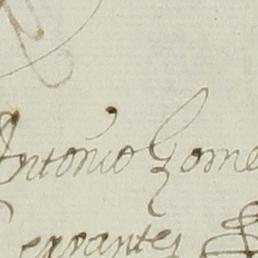 Antonio Gome
cervantes